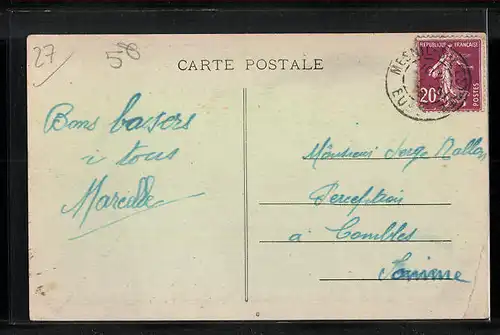 27
58
CARTE POSTALE
REPUBLIQUE FRANÇAISE
20
POSTES
MESNIL
EU
Bons baisers
à tous
Marcelle
Monsieur Serge Mallon
Perception
à Combles
Somme